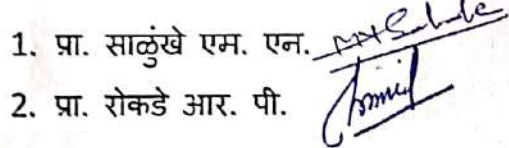 1. प्रा. साळुंखे एम. एन.
2. प्रा. रोकडे आर. पी.